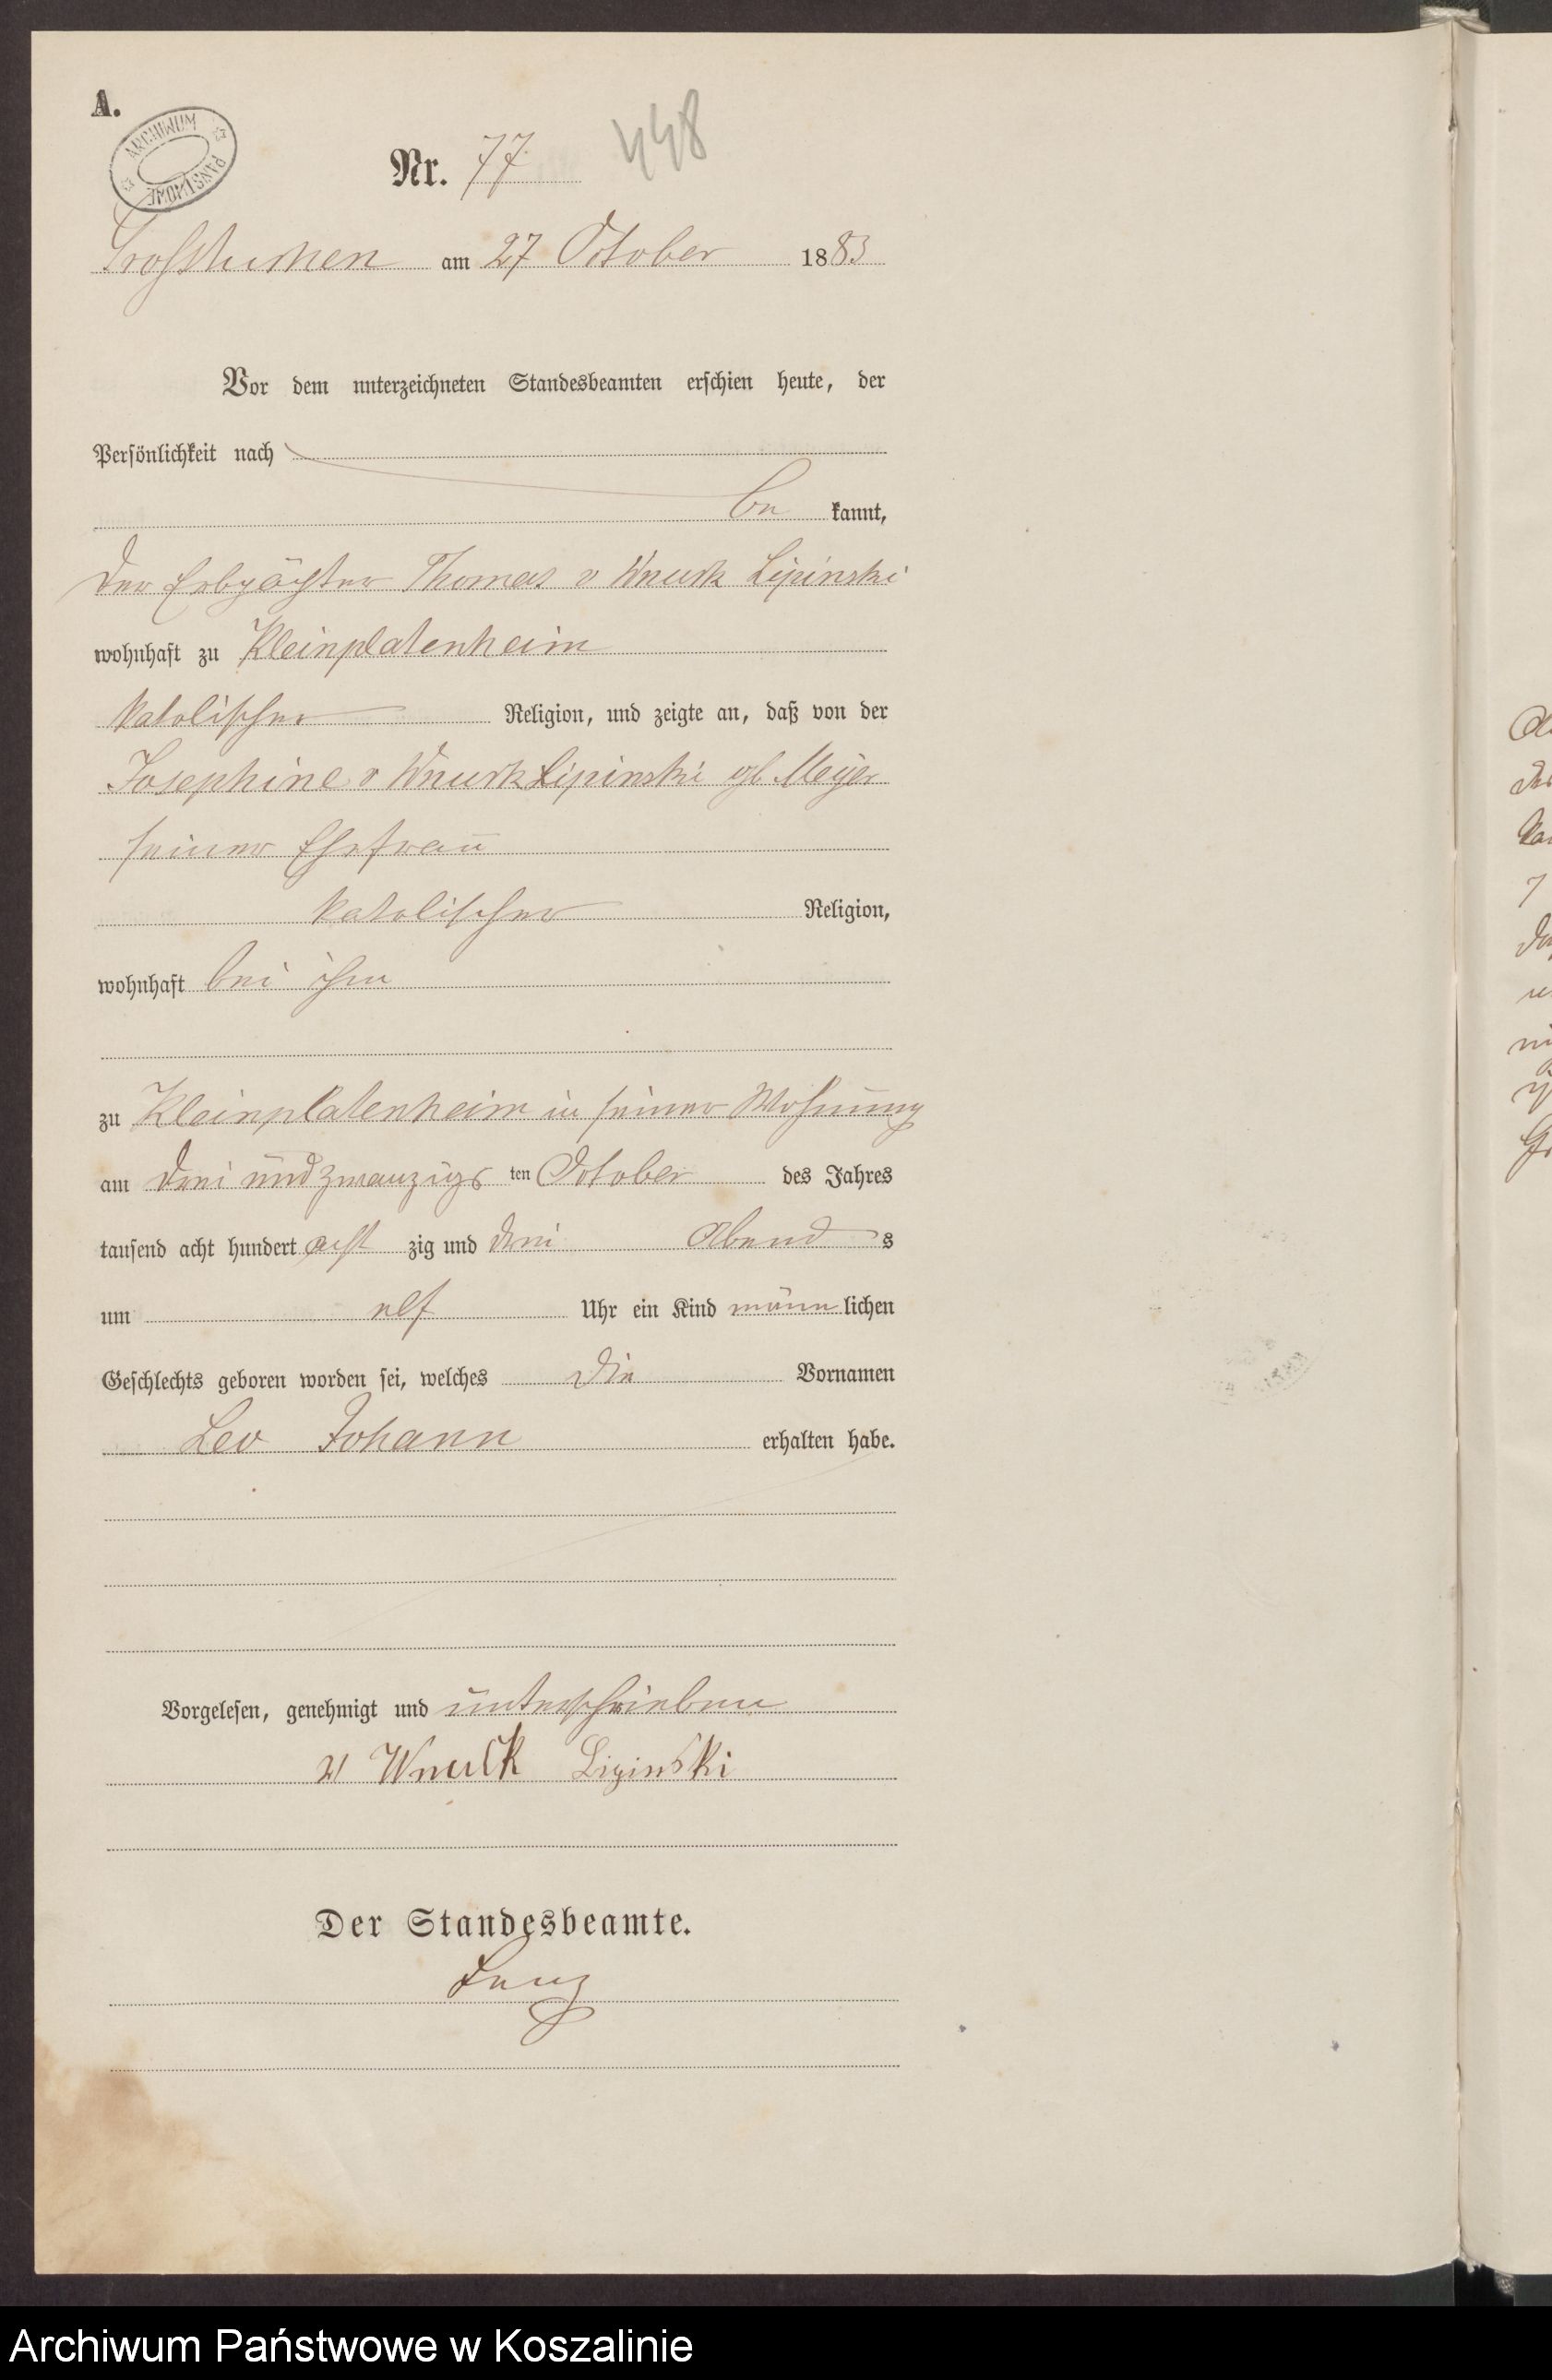 A.
ARCHIWUM PAŃSTWOWE
Nr. 77 448
Grosstuchen am 27 October 1883
Vor dem unterzeichneten Standesbeamten erschien heute, der
Persönlichkeit nach
be kannt,
der Erbpächter Thomas v Wnuck Lipinski
wohnhaft zu Kleinplatenheim
katolischer Religion, und zeigte an, daß von der
Josephine v Wnuck Lipinski gb Meyer
seiner Ehefrau
katolischer Religion,
wohnhaft bei ihm
zu Kleinplatenheim in seiner Wohnung
am drei und zwanzigs ten October des Jahres
tausend acht hundert acht zig und drei Abend s
um elf Uhr ein Kind männ lichen
Geschlechts geboren worden sei, welches die Vornamen
Leo Johann erhalten habe.
Vorgelesen, genehmigt und unterschrieben
v Wnuck Lipinski
Der Standesbeamte.
Lenz
Archiwum Państwowe w Koszalinie